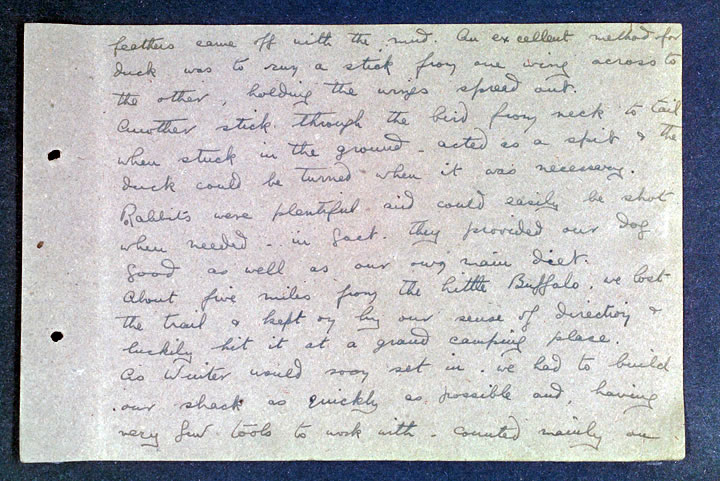 feathers came off with the mud. An excellent method for
duck was to run a stick from one wing across to
the other, holding the wings spread out.
Another stick through the bird from neck to tail
when stuck in the ground - acted as a spit & the
duck could be turned when it was necessary.
Rabbits were plentiful and could easily be shot
when needed - in fact. they provided our dog
food as well as our own main diet.
About five miles from the Little Buffalo. we lost
the trail & kept on by our sense of direction &
luckily hit it at a grand camping place.
As Winter would soon set in. we had to build
our shack as quickly as possible and, having
very few tools to work with - counted mainly on